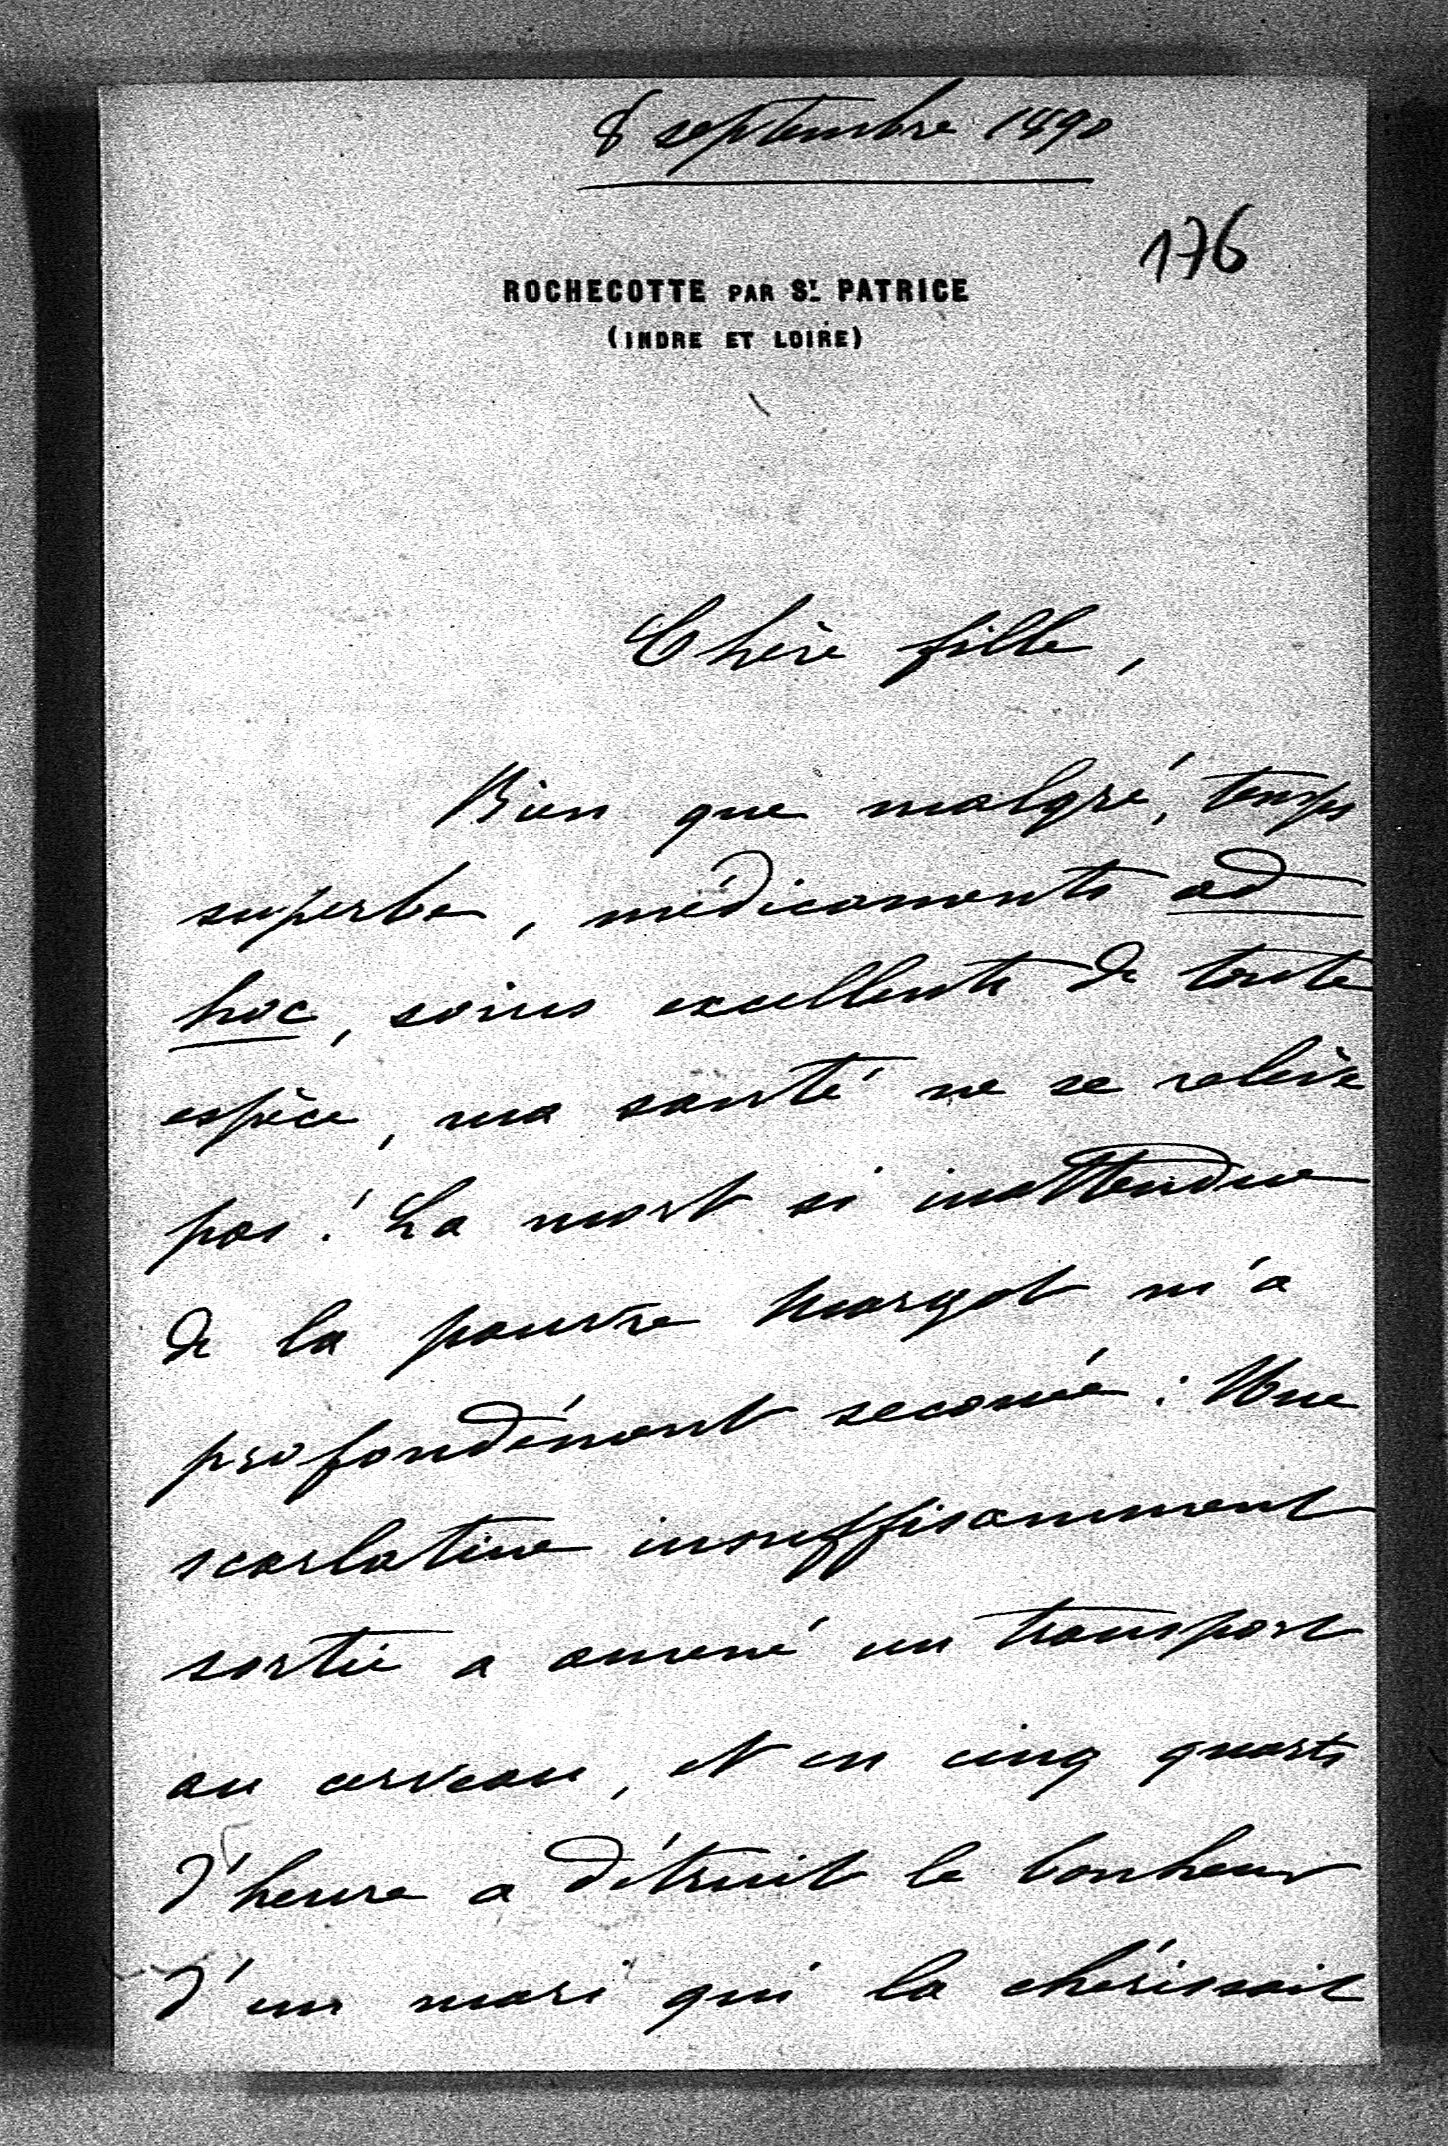 8 septembre 1890
176
ROCHECOTTE PAR ST. PATRICE
(INDRE ET LOIRE)
Chère fille,
Bien que malgré, temps
superbe, médicaments ad
hoc, soins excellents de toute
espèce, ma santé ne se relève
pas! La mort si inattendue
de la pauvre Margot m'a
profondément secouée: Une
scarlatine insuffisamment
sortie a amené un transport
au cerveau, et en cinq quarts
d'heure a détruit le bonheur
d'un mari qui la chérissait